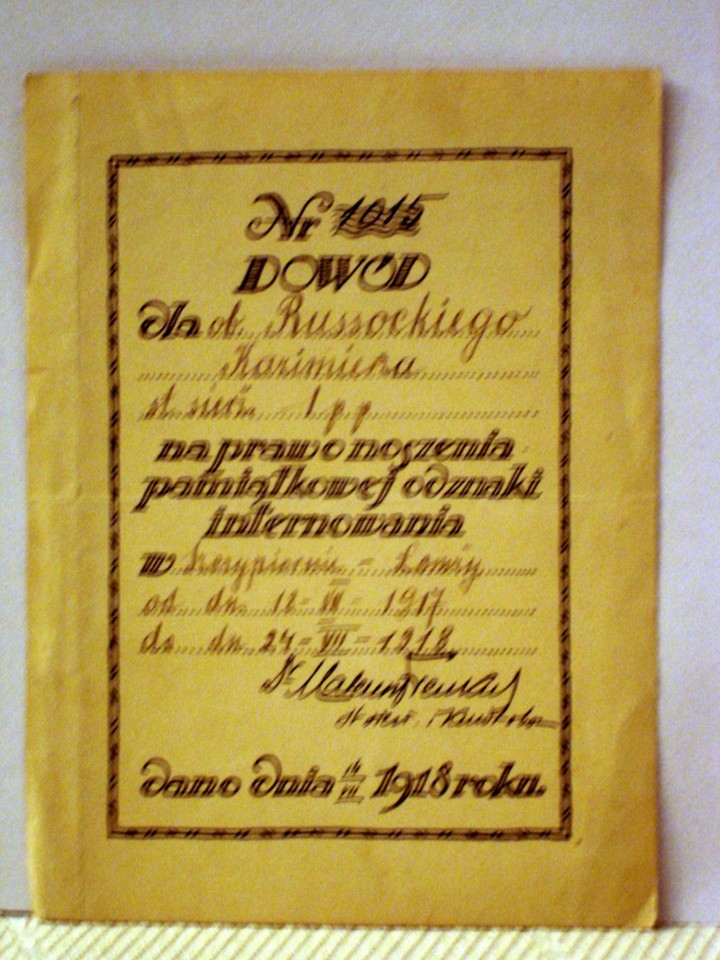 Nr 1015
DOWÓD
dla ob. Russockiego
Kazimierza
st. sierż. 1 p p
na prawo noszenia
pamiątkowej odznaki
internowania
w Szczypiornie - Łomży
od dn. 12 - VII - 1917
do dn 24 - VII - 1918
dano dnia 14/VII 1918 roku.